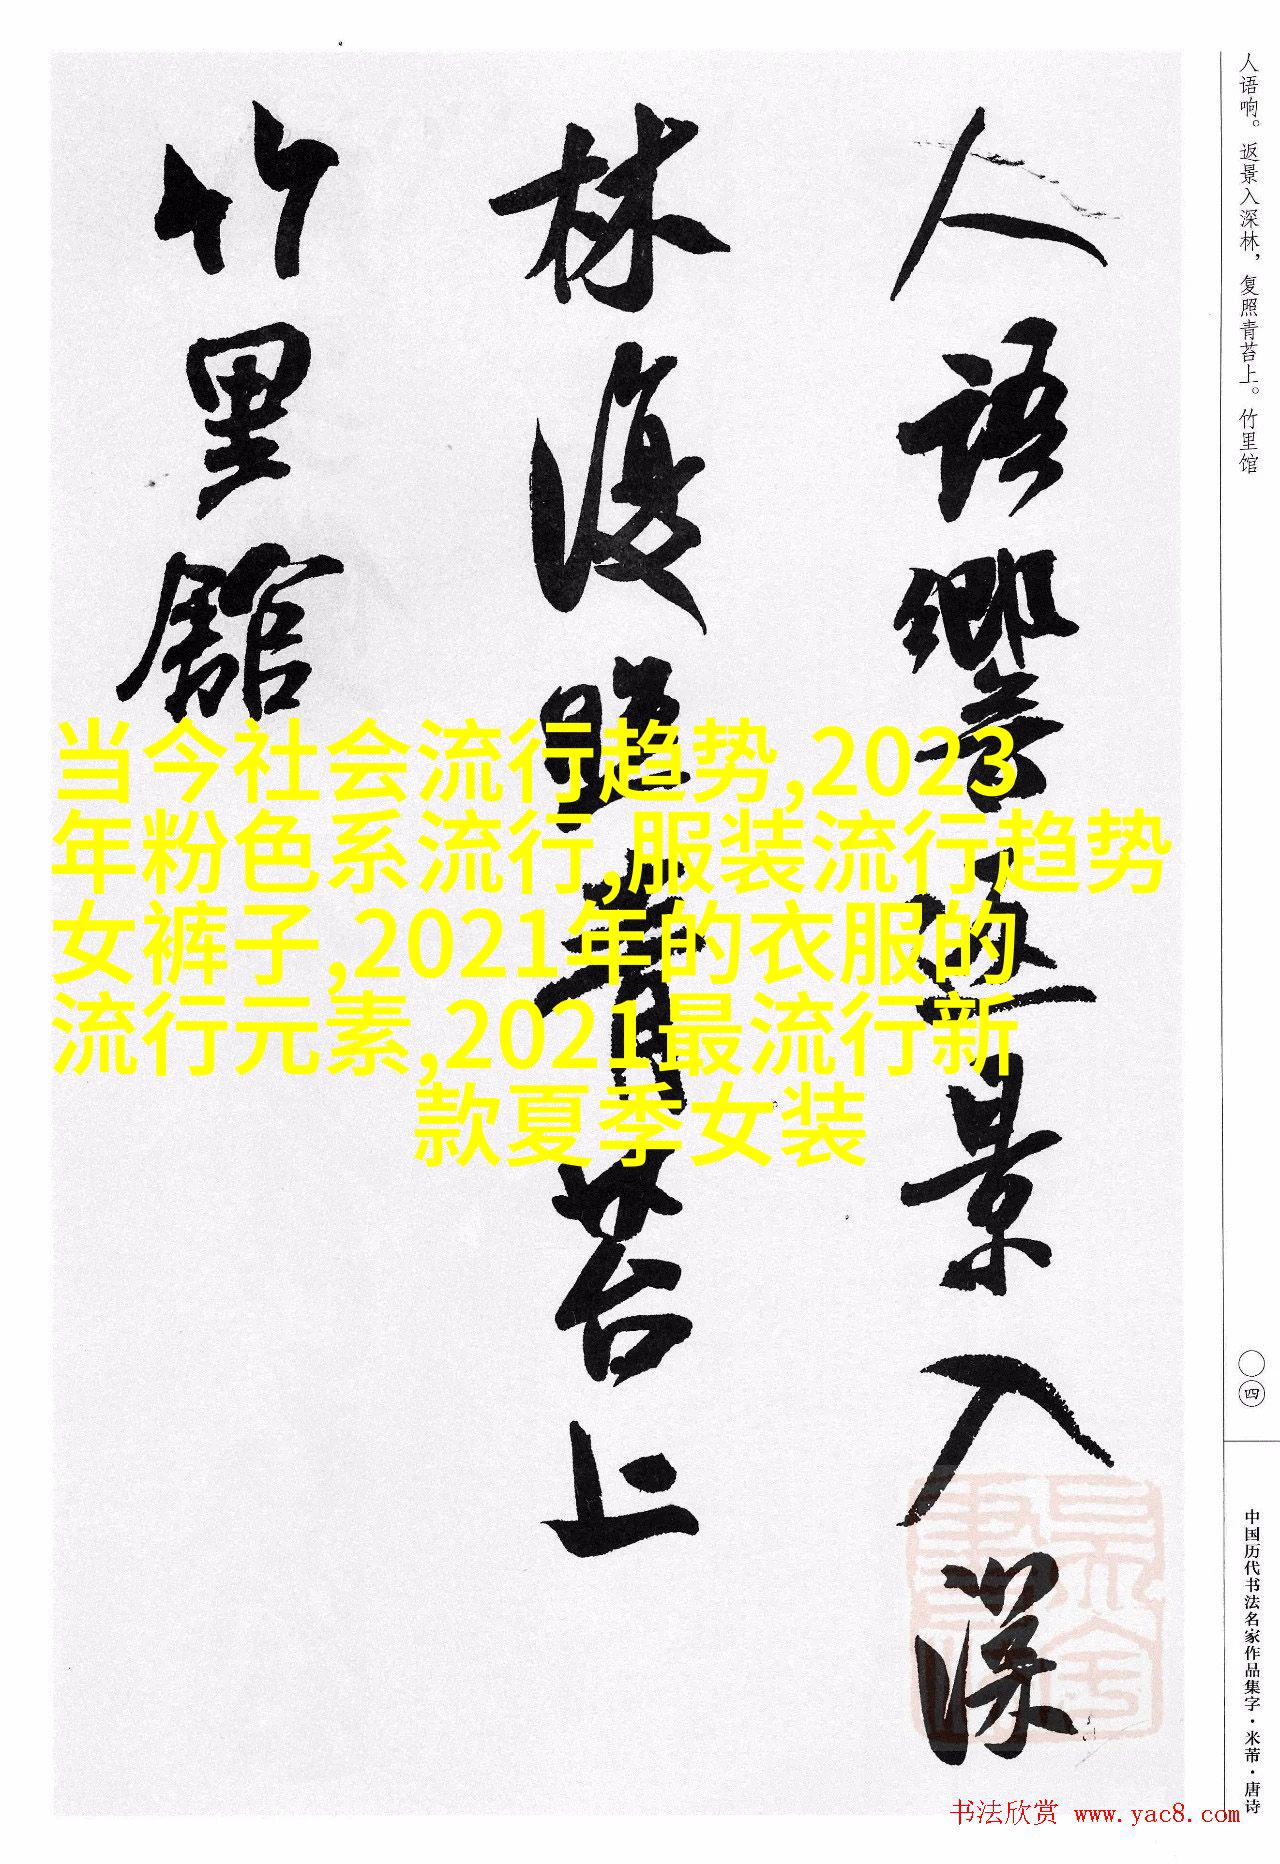 人语响。返景入深林，复照青苔上。竹里馆
人語響返景入深
林復照青苔上
竹里館
当今社会流行趋势,2023
年粉色系流行,服装流行趋势
女裤子,2021年的衣服的
流行元素,2021最流行新
款夏季女装
〇四
中国历代书法名家作品集字·米芾·唐诗
书法欣赏 www.yac8.com